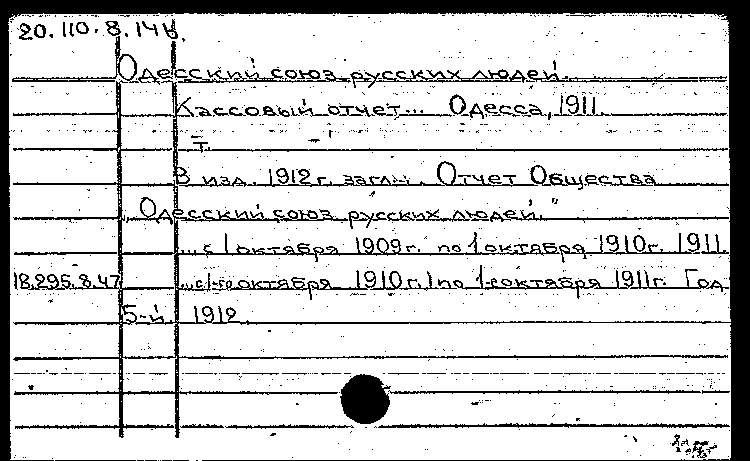 20.110.8.14б.
Одесский союз русских людей.
Кассовый отчет... Одесса, 1911.
т.
В изд. 1912 г. загл.: Отчет Общества
"Одесский союз русских людей."
... с 1 октября 1909г. по 1 октября 1910г. 1911.
18.295.8.47 ... с 1-го октября 1910г. по 1-е октября 1911г. Год
5-й. 1912.